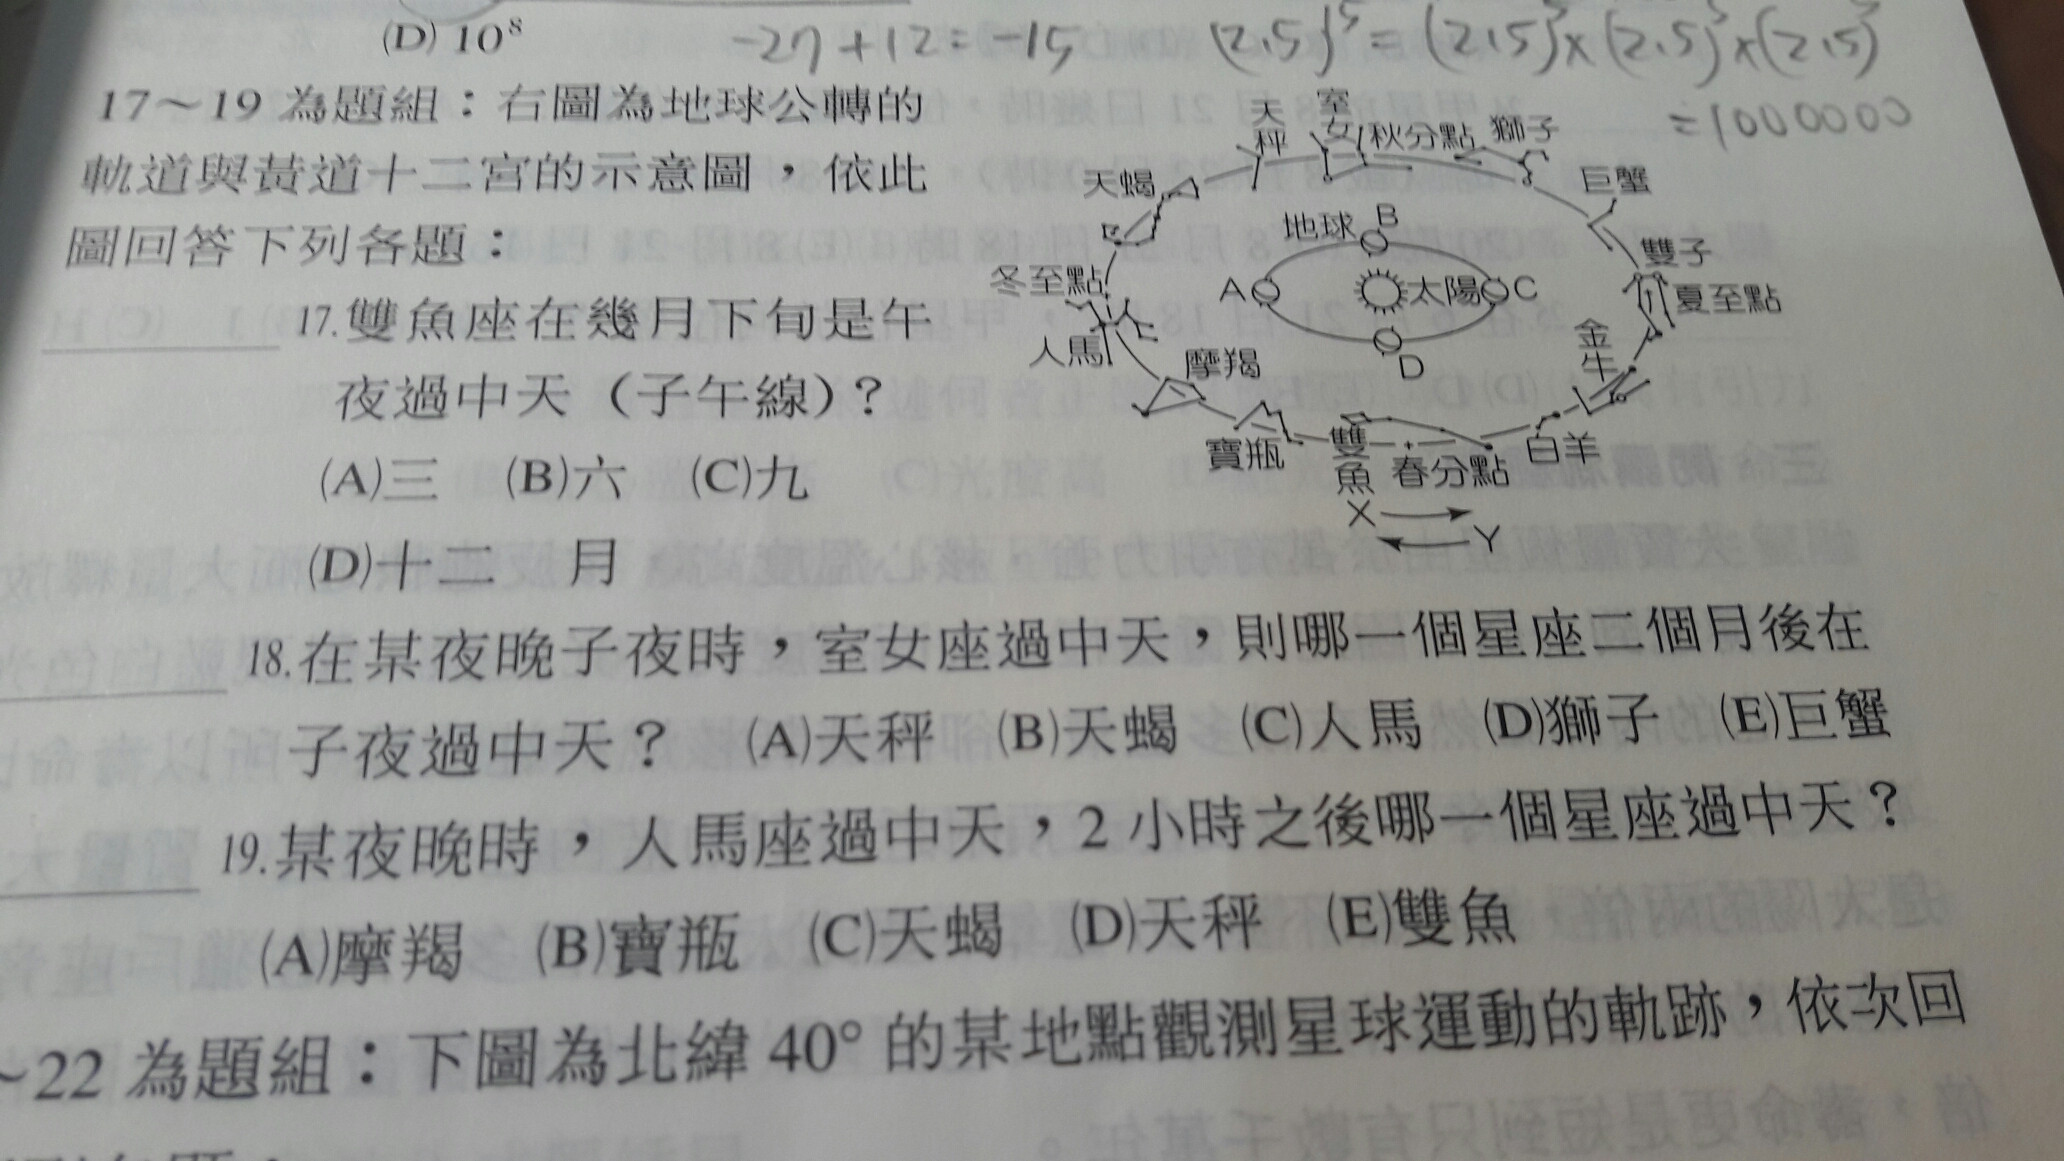 (D) 10⁸
-27+12=-15
(2.5)⁵=(2.5)⁵×(2.5)⁵×(2.5)⁵
=1000000
17～19 為題組：右圖為地球公轉的
軌道與黃道十二宮的示意圖，依此
圖回答下列各題：
17.雙魚座在幾月下旬是午
夜過中天（子午線）？
(A)三 (B)六 (C)九
(D)十二 月
天秤
室女
秋分點
獅子
天蠍
巨蟹
地球
B
雙子
冬至點
A
太陽
C
夏至點
人馬
摩羯
D
金牛
寶瓶
雙魚
春分點
白羊
X
Y
18.在某夜晚子夜時，室女座過中天，則哪一個星座二個月後在
子夜過中天？ (A)天秤 (B)天蠍 (C)人馬 (D)獅子 (E)巨蟹
19.某夜晚時，人馬座過中天，2 小時之後哪一個星座過中天？
(A)摩羯 (B)寶瓶 (C)天蠍 (D)天秤 (E)雙魚
～22 為題組：下圖為北緯 40° 的某地點觀測星球運動的軌跡，依次回